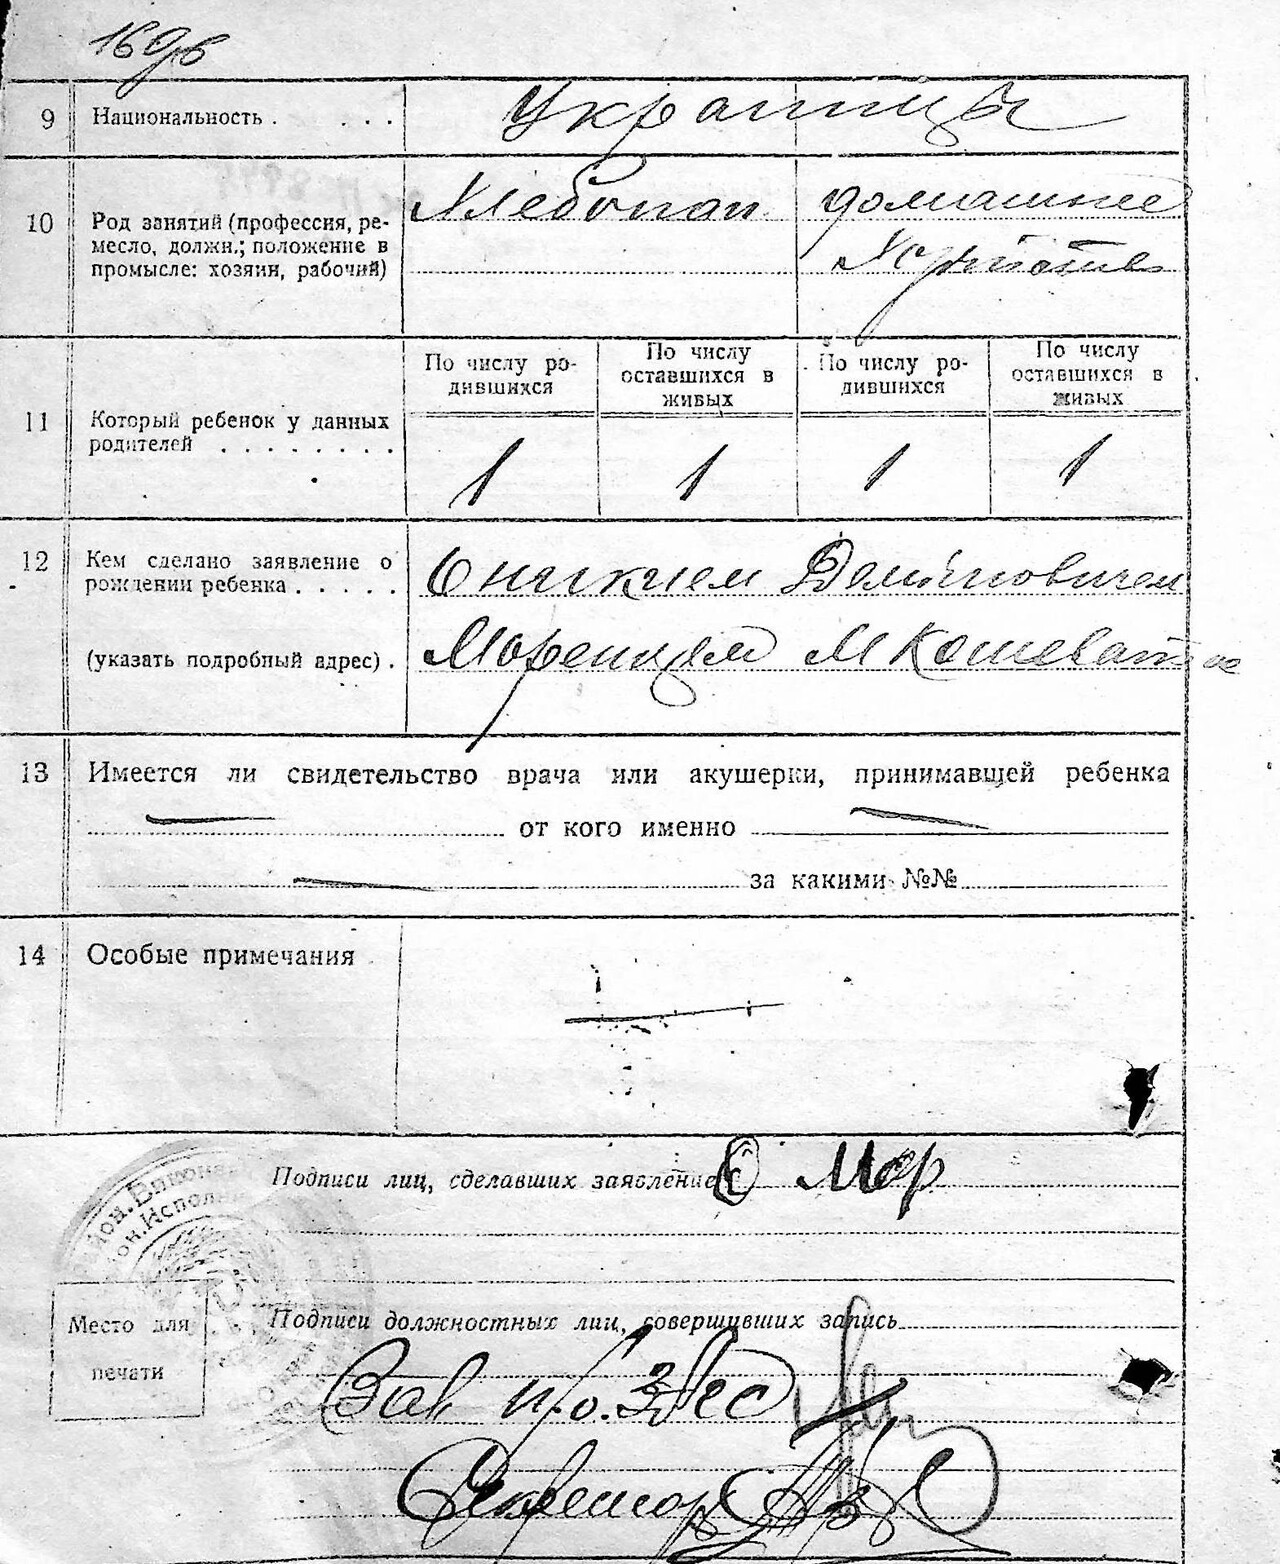 169б
9 Национальность . . . . . Украинцы
10 Род занятий (профессия, ре-
месло, должн.; положение в
промысле: хозяин, рабочий)
Хлебопаш домашнее
11 Который ребенок у данных
родителей . . . . . . . .
По числу ро-
дившихся
По числу
оставшихся в
живых
По числу ро-
дившихся
По числу
оставшихся в
живых
1 1 1 1
12 Кем сделано заявление о
рождении ребенка . . . . .
(указать подробный адрес) .
Оникием Демьяновичем
Моренцем м Кошевато
13 Имеется ли свидетельство врача или акушерки, принимавшей ребенка
от кого именно
за какими №№
14 Особые примечания
Подписи лиц, сделавших заявление О Мор
Место для
печати
Подписи должностных лиц, совершивших запись
Зав
Секретар